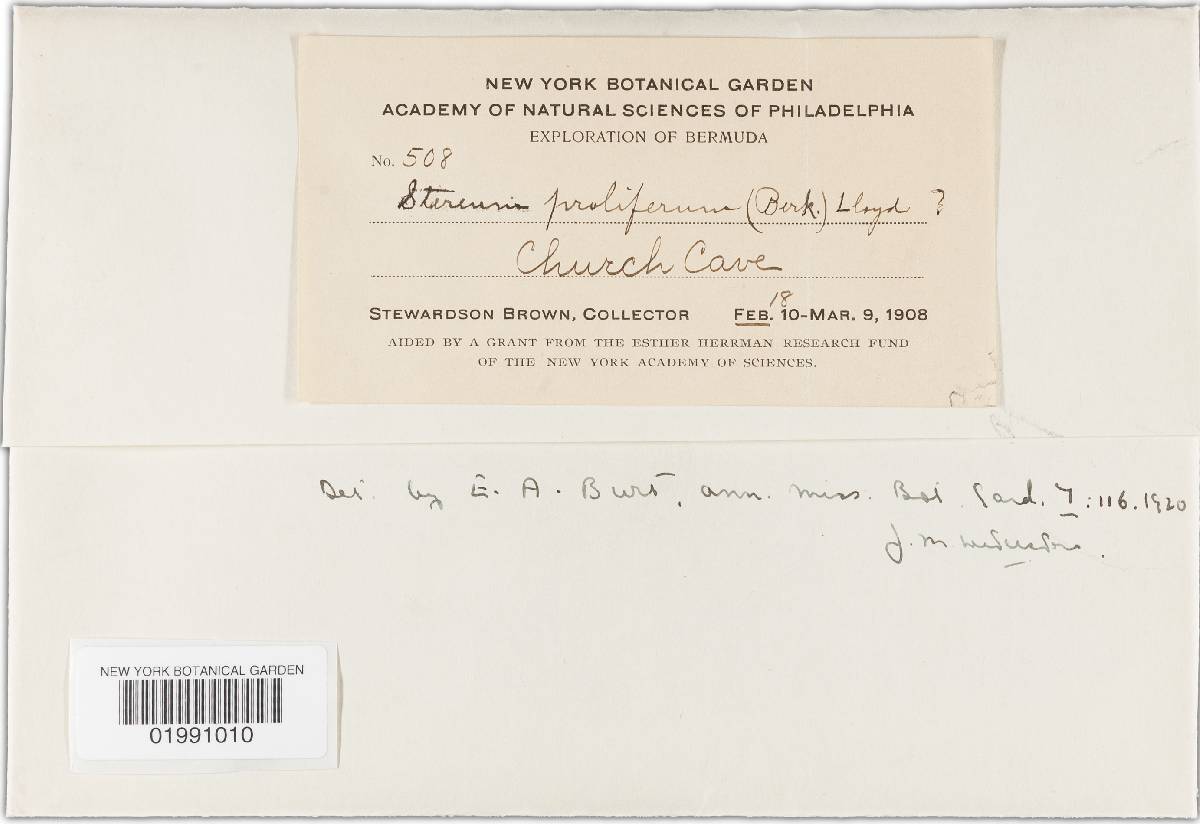 NEW YORK BOTANICAL GARDEN
ACADEMY OF NATURAL SCIENCES OF PHILADELPHIA
EXPLORATION OF BERMUDA
No. 508
Stereum proliferum (Berk.) Lloyd ?
Church Cave
STEWARDSON BROWN, COLLECTOR FEB. 18 10-MAR. 9, 1908
AIDED BY A GRANT FROM THE ESTHER HERRMAN RESEARCH FUND
OF THE NEW YORK ACADEMY OF SCIENCES.
Det. by E. A. Burt, ann. miss. Bot. Gard. 7:116.1920
J. M.
NEW YORK BOTANICAL GARDEN
01991010